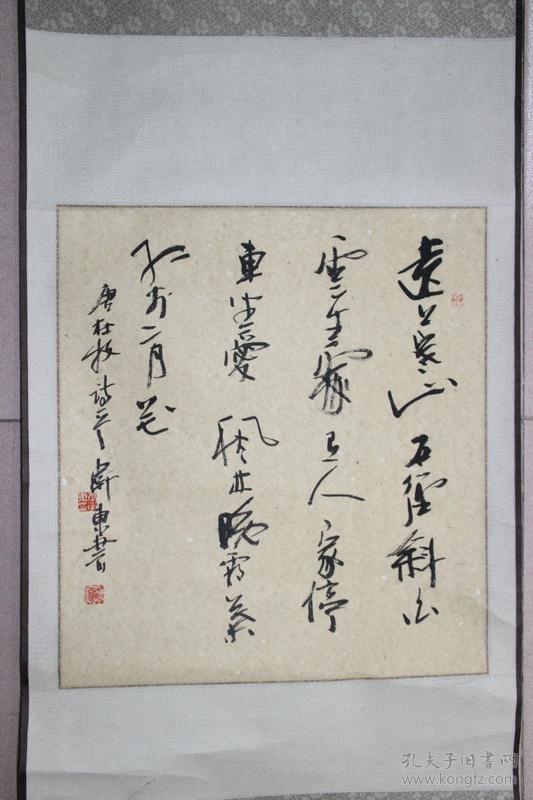 遠上寒山石徑斜白
雲生處有人家停
車坐愛楓林晚霜葉
紅於二月花
唐杜牧詩 東書
孔夫子旧书网
www.kongfz.com